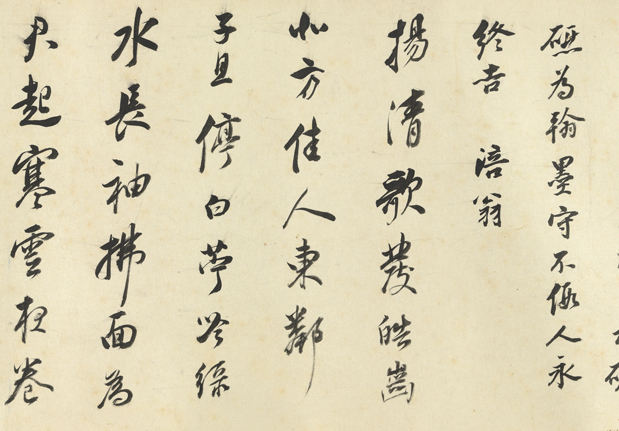 為翰墨守不假人永
終吉 涪翁
揚清歌發皓齒
北方佳人東鄰
子且停白苧吟緑
水長袖拂面為
君起寒雲夜卷